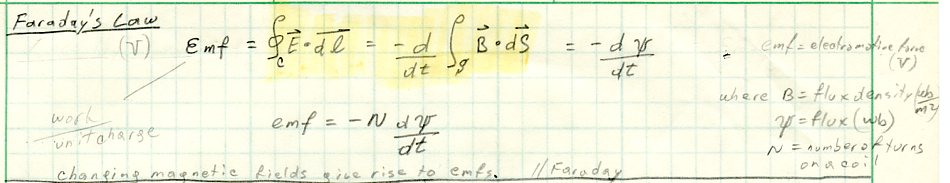 Faraday's Law
(V) Emf = ∮c E⃗ · dl⃗ = -d/dt ∫s B⃗ · dS⃗ = -dψ/dt
emf = electromotive force (V)
work / unit charge
emf = -N dψ/dt
where B = flux density (wb/m²)
ψ = flux (wb)
N = number of turns
on a coil
changing magnetic fields give rise to emfs. // Faraday